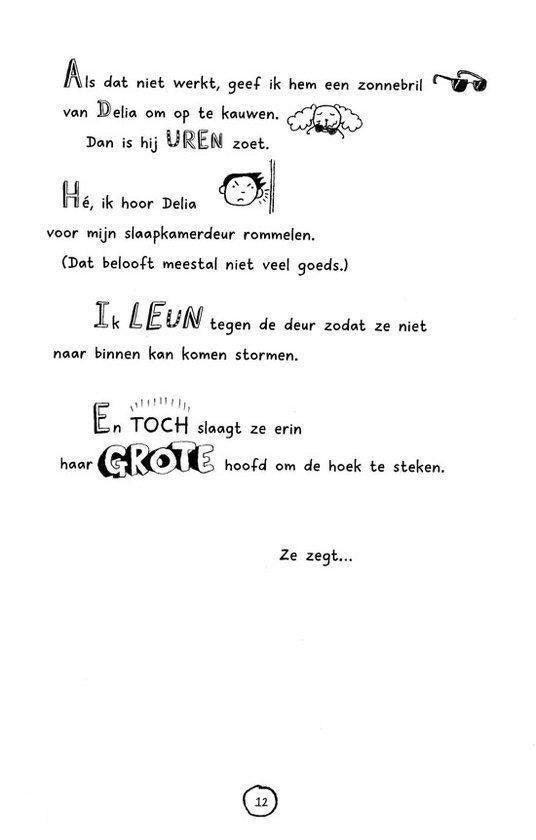 Als dat niet werkt, geef ik hem een zonnebril
van Delia om op te kauwen.
Dan is hij UREN zoet.
Hé, ik hoor Delia
voor mijn slaapkamerdeur rommelen.
(Dat belooft meestal niet veel goeds.)
Ik LEUN tegen de deur zodat ze niet
naar binnen kan komen stormen.
En TOCH slaagt ze erin
haar GROTE hoofd om de hoek te steken.
Ze zegt...
12